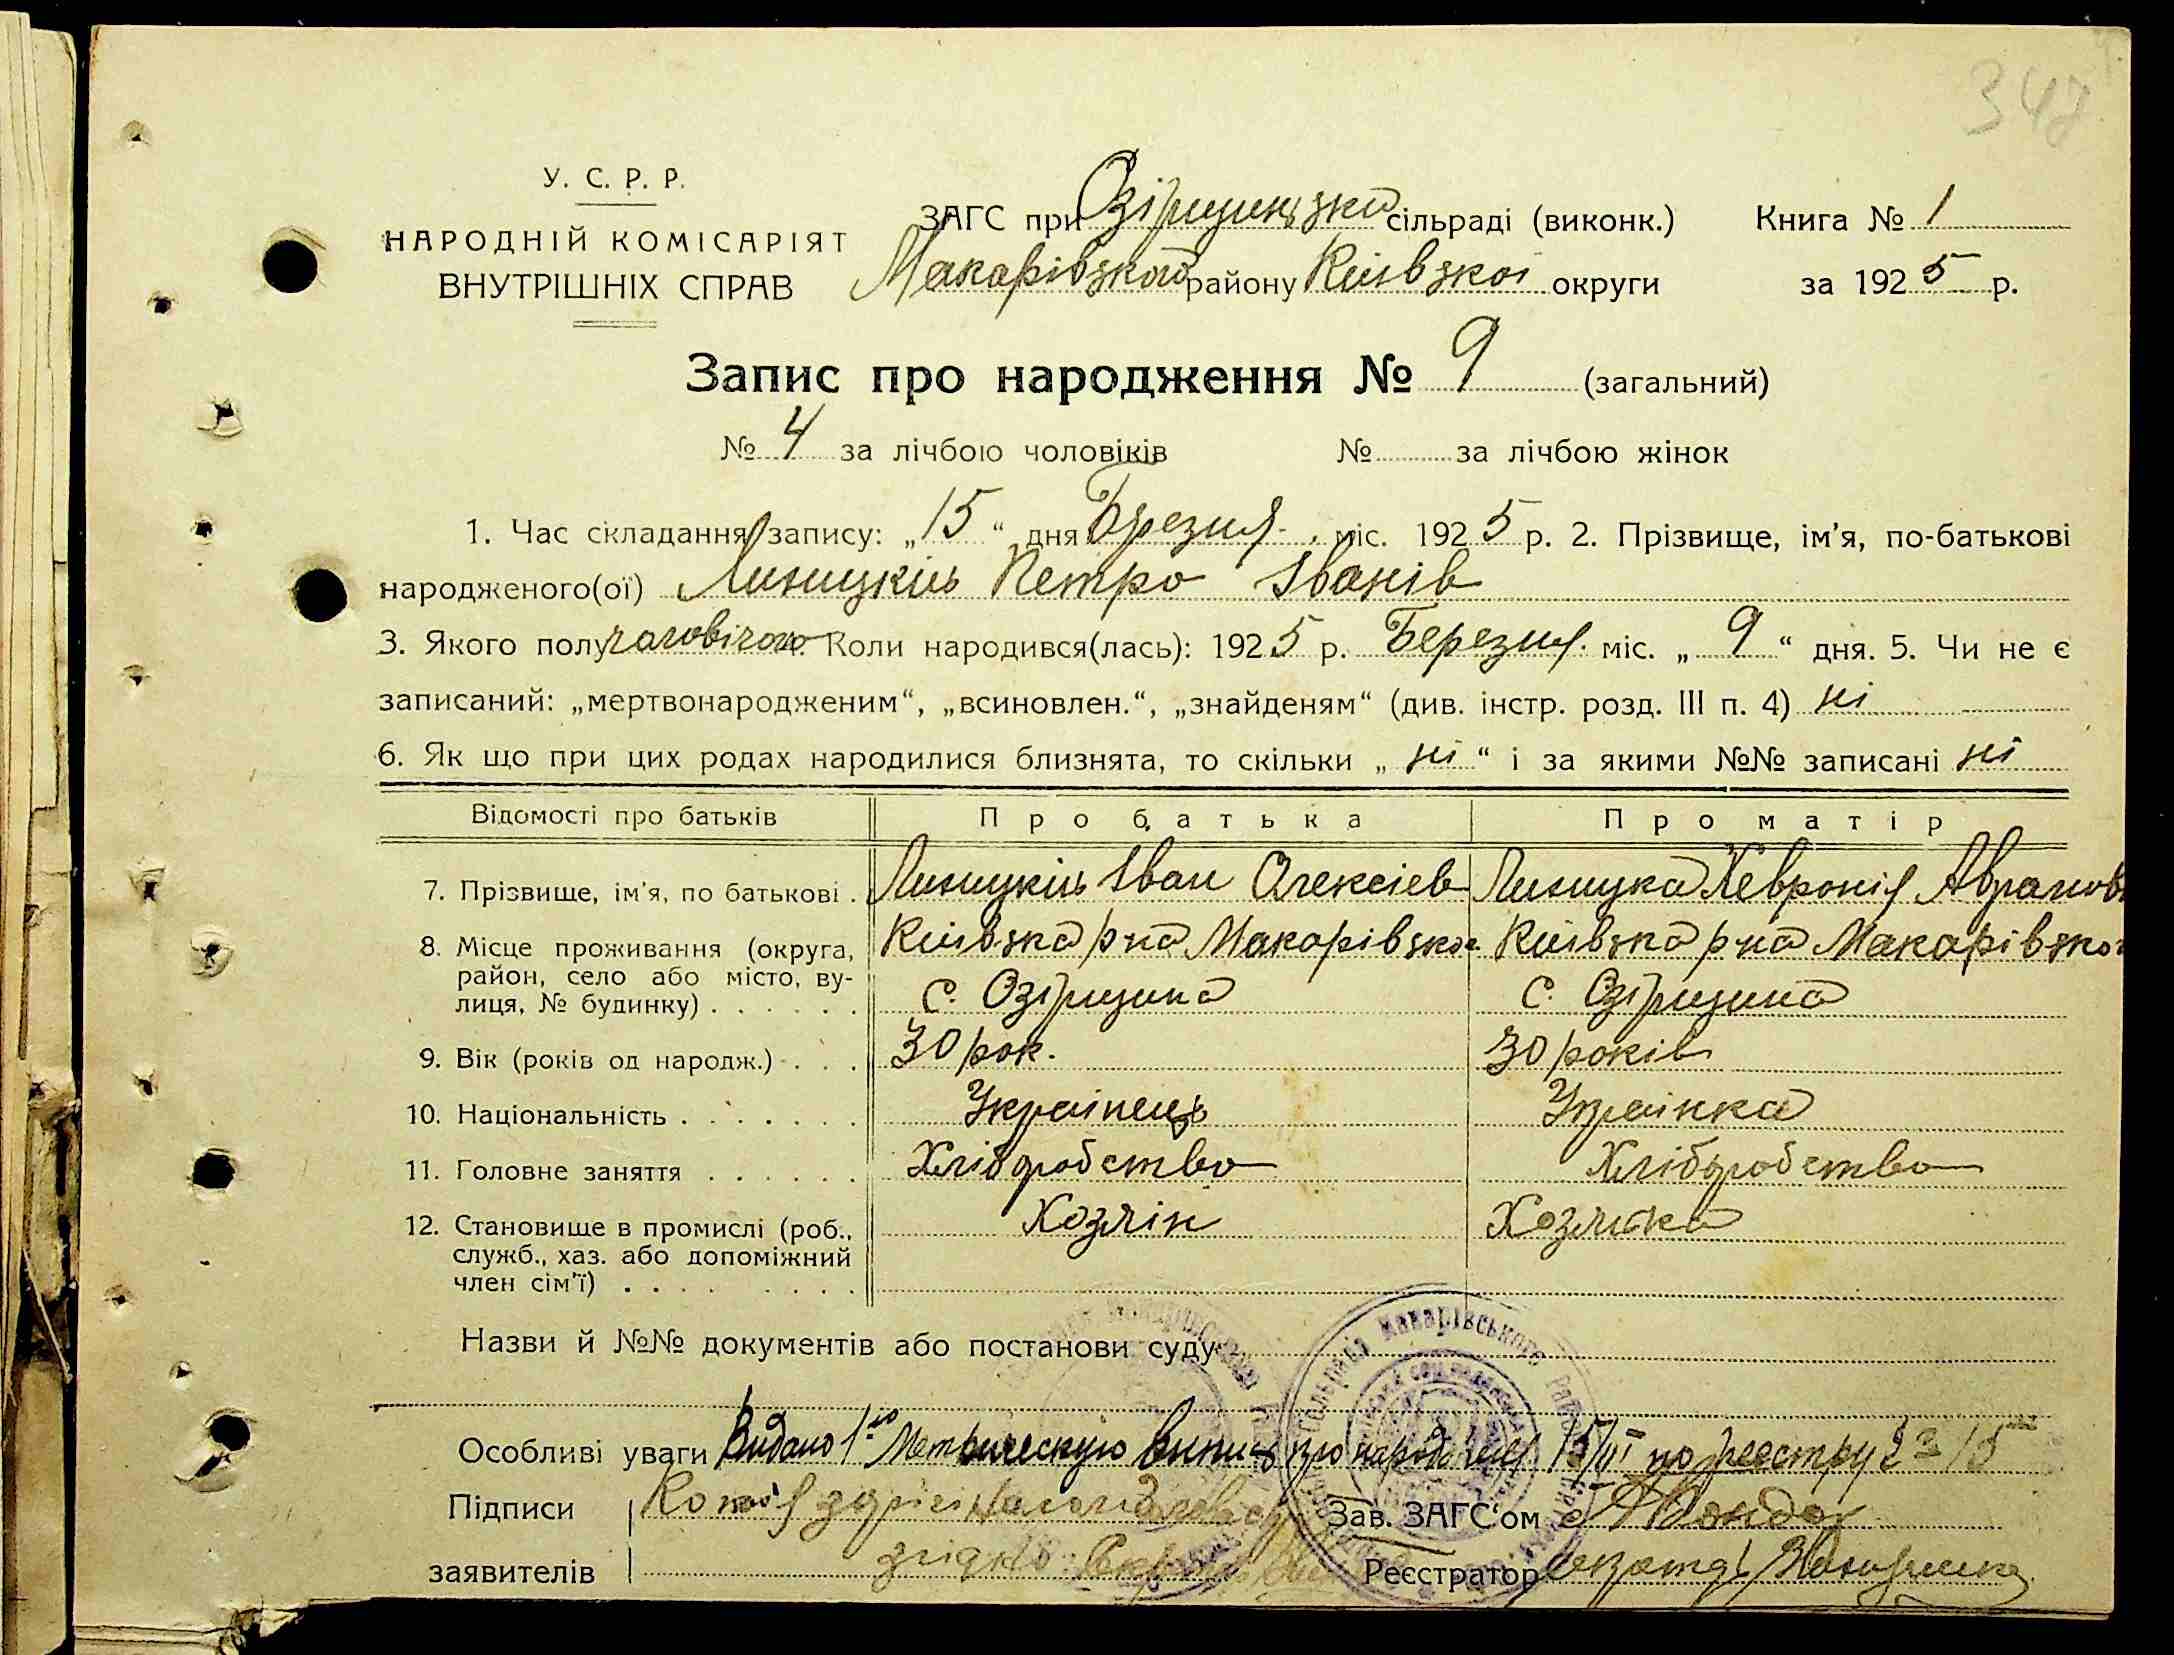 348
У. С. Р. Р.
НАРОДНІЙ КОМІСАРІЯТ
ВНУТРІШНІХ СПРАВ
ЗАГС при Озірщиньзко сільраді (виконк.) Книга № 1
Макарівзкого району Київзкої округи за 1925 р.
Запис про народження № 9 (загальний)
№ 4 за лічбою чоловіків № за лічбою жінок
1. Час складання запису: „15“ дня Березня міс. 1925 р. 2. Прізвище, ім'я, по-батькові
народженого(ої) Линицкіь Петро Іванів
3. Якого полу чоловічого Коли народився(лась): 1925 р. Березня. міс. „9“ дня. 5. Чи не є
записаний: „мертвонародженим“, „всиновлен.“, „знайденям“ (див. інстр. розд. III п. 4) ні
6. Як що при цих родах народилися близнята, то скільки „ні“ і за якими №№ записані ні
Відомості про батьків Про батька Про матір
7. Прізвище, ім'я, по батькові . Линицкіь Іван Олексієв Линицка Хевронія Аврамов
8. Місце проживання (округа, район, село або місто, ву-лиця, № будинку) . . . . . .
Київзка р-на Макарівзко Київзка р-на Макарівзко
с. Озірщина с. Озірщина
9. Вік (років од народж.) . . . 30 рок. 30 років
10. Національність . . . . . . . Українець Українка
11. Головне заняття . . . . . . Хліборобство Хліборобство
12. Становище в промислі (роб., Хозяін Хозяйка
служб., хаз. або допоміжний
член сім'ї) . . . . . . . .
Назви й №№ документів або постанови суду
Особливі уваги Видано 1ю Метрическую випись про народження 15/III по реєстру 23/5
Підписи Копія Зав. ЗАГС'ом
заявителів Реєстратор
Макарівського